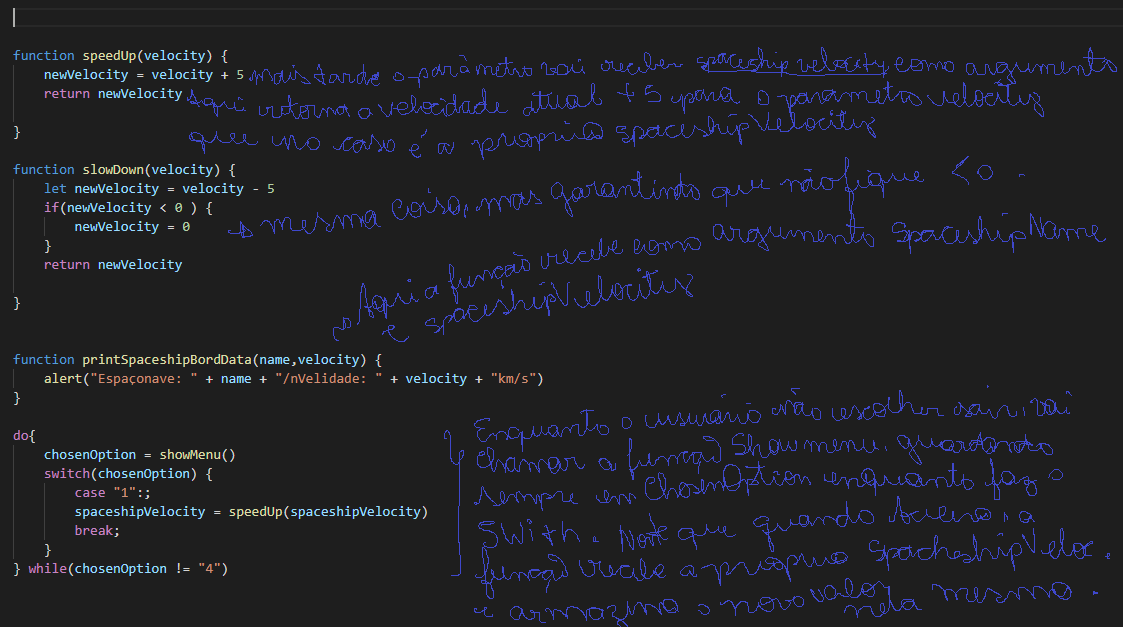 function speedUp(velocity) {
newVelocity = velocity + 5 mais tarde o parâmetro vai receber spaceship velocity como argumento
return newVelocity Aqui retorna a velocidade atual + 5 para o parametro velocity
que no caso é a propria spaceshipVelocity
}
function slowDown(velocity) {
let newVelocity = velocity - 5
if(newVelocity < 0 ) {
newVelocity = 0
mesma coisa, mas garantindo que não fique < 0 .
}
return newVelocity
Aqui a função recebe como argumento SpaceshipName
e spaceshipVelocity
}
function printSpaceshipBordData(name,velocity) {
alert("Espaçonave: " + name + "/nVelidade: " + velocity + "km/s")
}
do{
chosenOption = showMenu()
switch(chosenOption) {
case "1":;
spaceshipVelocity = speedUp(spaceshipVelocity)
break;
}
} while(chosenOption != "4")
Enquanto o usuário não escolher sair, vai
chamar a função Showmenu, guardando
sempre em ChosenOption enquanto faz o
SWith. Note que quando a
função recebe a propria SpacheshipVeloc.
e armazena o novo valor nela mesmo.